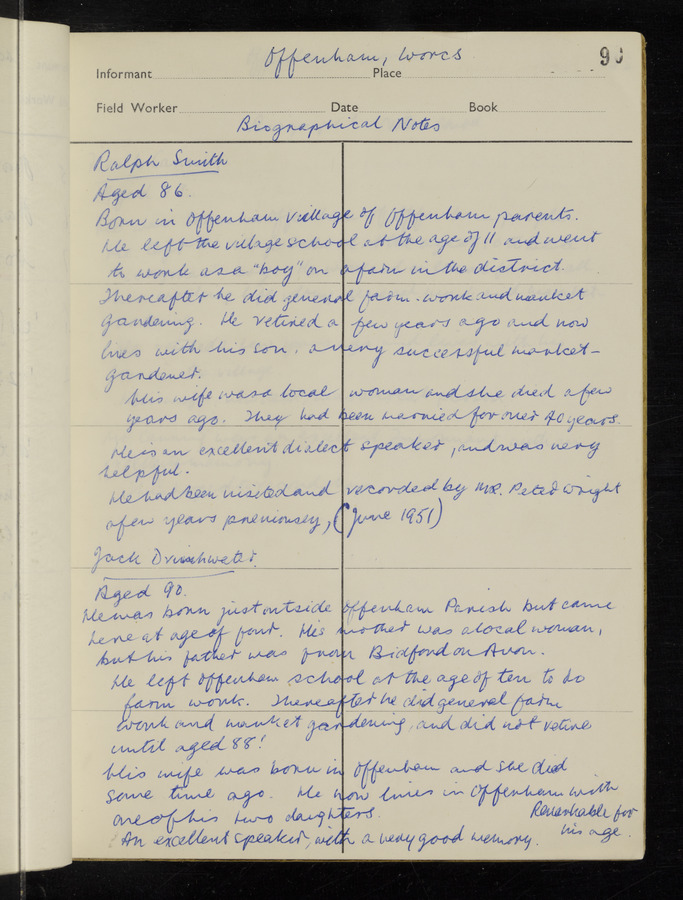 Offenham, Worcs
90
Informant Place
Field Worker Date Book
Biographical Notes
Ralph Smith
Aged 86.
Born in Offenham village of Offenham parents.
He left the village school at the age of 11 and went
to work as a "boy" on a farm in the district.
Thereafter he did general farm-work and market
gardening. He retired a few years ago and now
lives with his son, a very successful market-
gardener.
His wife was a local woman and she died a few
years ago. They had been married for over 40 years.
He is an excellent dialect speaker, and was very
helpful.
He had been visited and recorded by Mr. Peter Wright
a few years previously, (June 1951)
Jack Drinkwater.
Aged 90.
He was born just outside Offenham Parish but came
here at age of four. His mother was a local woman,
but his father was from Bidford on Avon.
He left Offenham school at the age of ten to do
farm work. Thereafter he did general farm
work and market gardening, and did not retire
until aged 88!
His wife was born in Offenham and she died
some time ago. He now lives in Offenham with
one of his two daughters.
An excellent speaker, with a very good memory.
Remarkable for
his age.